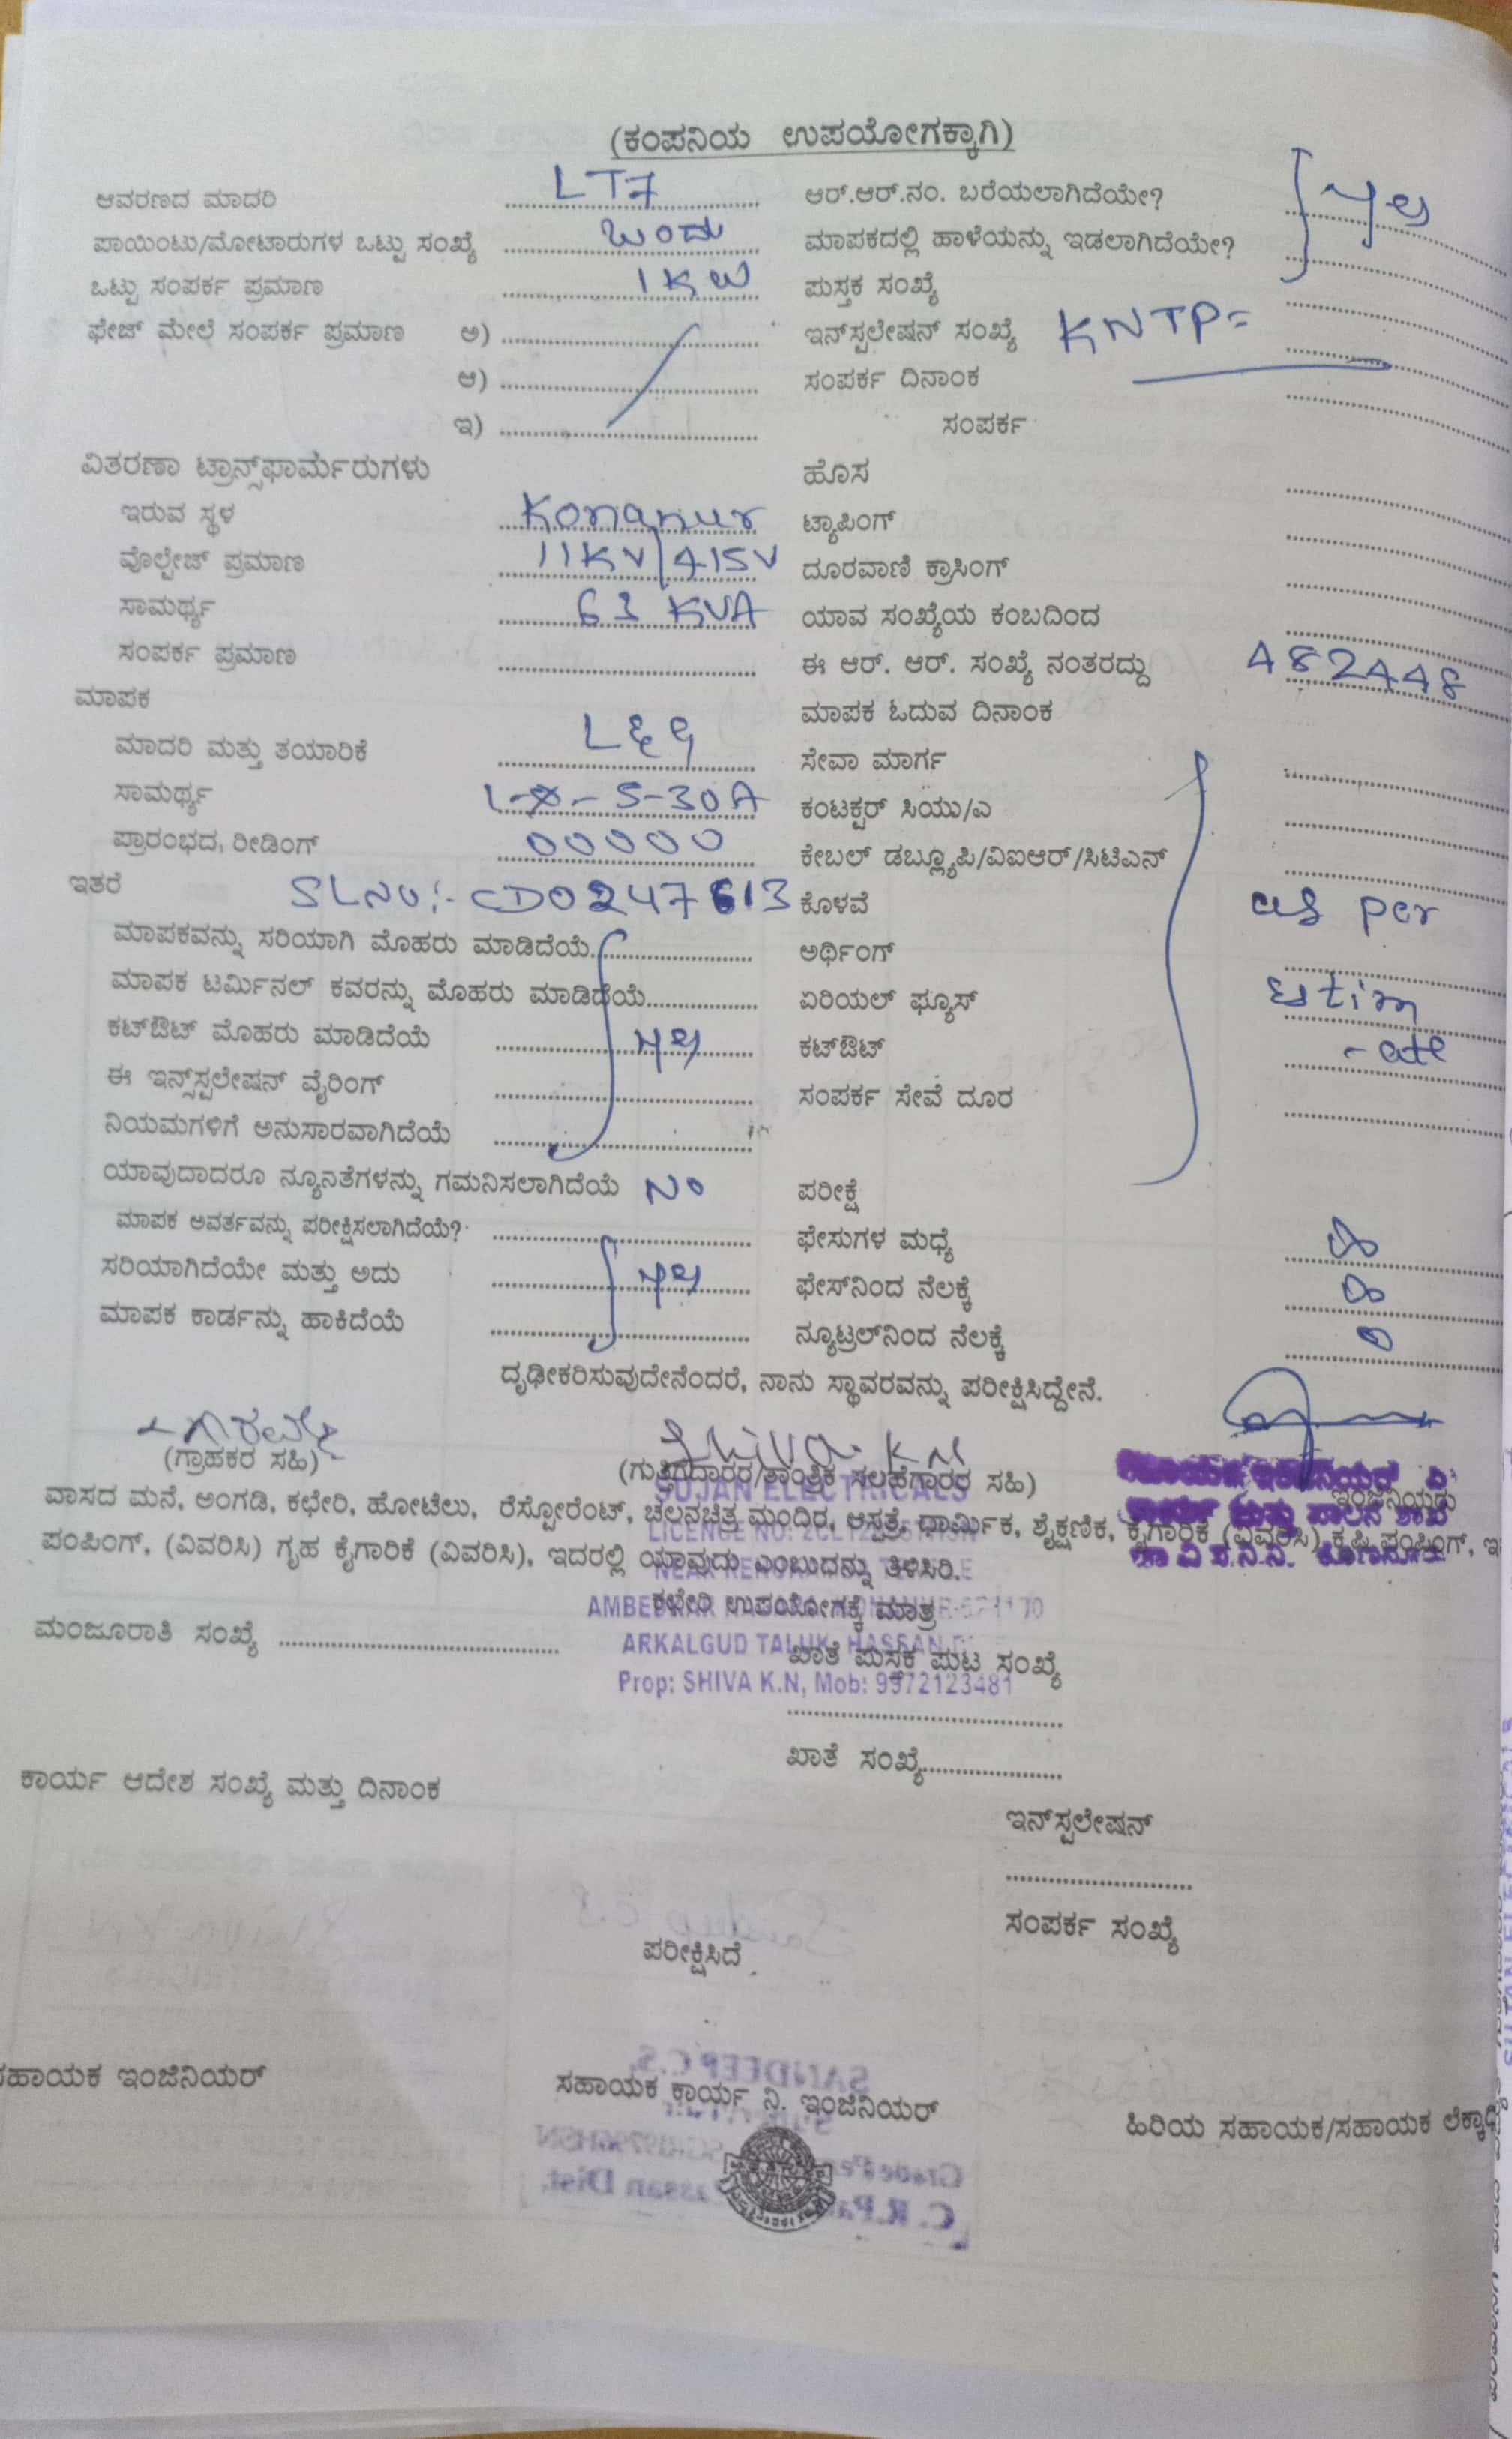 (ಕಂಪನಿಯ ಉಪಯೋಗಕ್ಕಾಗಿ)
ಆವರಣದ ಮಾದರಿ LT7 ಆರ್.ಆರ್.ನಂ. ಬರೆಯಲಾಗಿದೆಯೇ? yes
ಪಾಯಿಂಟು/ಮೋಟಾರುಗಳ ಒಟ್ಟು ಸಂಖ್ಯೆ ಒಂದು ಮಾಪಕದಲ್ಲಿ ಹಾಳೆಯನ್ನು ಇಡಲಾಗಿದೆಯೇ?
ಒಟ್ಟು ಸಂಪರ್ಕ ಪ್ರಮಾಣ 1KW ಪುಸ್ತಕ ಸಂಖ್ಯೆ
ಫೇಜ್ ಮೇಲೆ ಸಂಪರ್ಕ ಪ್ರಮಾಣ ಅ) ಇನ್‌ಸ್ಪಲೇಷನ್ ಸಂಖ್ಯೆ KNTP=
ಆ) ಸಂಪರ್ಕ ದಿನಾಂಕ
ಇ) ಸಂಪರ್ಕ
ವಿತರಣಾ ಟ್ರಾನ್ಸ್‌ಫಾರ್ಮೆರುಗಳು ಹೊಸ
ಇರುವ ಸ್ಥಳ Konanur ಟ್ಯಾಪಿಂಗ್
ವೊಲ್ಟೇಜ್ ಪ್ರಮಾಣ 11KV/415V ದೂರವಾಣಿ ಕ್ರಾಸಿಂಗ್
ಸಾಮರ್ಥ್ಯ 63 KVA ಯಾವ ಸಂಖ್ಯೆಯ ಕಂಬದಿಂದ
ಸಂಪರ್ಕ ಪ್ರಮಾಣ ಈ ಆರ್. ಆರ್. ಸಂಖ್ಯೆ ನಂತರದ್ದು 482448
ಮಾಪಕ ಮಾಪಕ ಓದುವ ದಿನಾಂಕ
ಮಾದರಿ ಮತ್ತು ತಯಾರಿಕೆ L&G ಸೇವಾ ಮಾರ್ಗ
ಸಾಮರ್ಥ್ಯ 5-30A ಕಂಟಕ್ಟರ್ ಸಿಯು/ಎ
ಪ್ರಾರಂಭದ, ರೀಡಿಂಗ್ 00000 ಕೇಬಲ್ ಡಬ್ಲ್ಯೂಪಿ/ವಿಐಆರ್/ಸಿಟಿಎನ್
ಇತರೆ SLNO:- CD0247613 ಕೊಳವೆ as per
ಮಾಪಕವನ್ನು ಸರಿಯಾಗಿ ಮೊಹರು ಮಾಡಿದೆಯೆ ಅರ್ಥಿಂಗ್
ಮಾಪಕ ಟರ್ಮಿನಲ್ ಕವರನ್ನು ಮೊಹರು ಮಾಡಿದೆಯೆ ಏರಿಯಲ್ ಫ್ಯೂಸ್ estim
ಕಟ್‌ಔಟ್ ಮೊಹರು ಮಾಡಿದೆಯೆ yes ಕಟ್‌ಔಟ್ -ate
ಈ ಇನ್ಸ್‌ಸ್ಪಲೇಷನ್ ವೈರಿಂಗ್ ಸಂಪರ್ಕ ಸೇವೆ ದೂರ
ನಿಯಮಗಳಿಗೆ ಅನುಸಾರವಾಗಿದೆಯೆ
ಯಾವುದಾದರೂ ನ್ಯೂನತೆಗಳನ್ನು ಗಮನಿಸಲಾಗಿದೆಯೆ No ಪರೀಕ್ಷೆ
ಮಾಪಕ ಅವರ್ತವನ್ನು ಪರೀಕ್ಷಿಸಲಾಗಿದೆಯೆ? ಫೇಸುಗಳ ಮಧ್ಯೆ
ಸರಿಯಾಗಿದೆಯೇ ಮತ್ತು ಅದು yes ಫೇಸ್‌ನಿಂದ ನೆಲಕ್ಕೆ
ಮಾಪಕ ಕಾರ್ಡನ್ನು ಹಾಕಿದೆಯೆ ನ್ಯೂಟ್ರಲ್‌ನಿಂದ ನೆಲಕ್ಕೆ
ದೃಢೀಕರಿಸುವುದೇನೆಂದರೆ, ನಾನು ಸ್ಥಾವರವನ್ನು ಪರೀಕ್ಷಿಸಿದ್ದೇನೆ.
Shiva. K N
(ಗ್ರಾಹಕರ ಸಹಿ) (ಗುತ್ತಿಗೆದಾರರ/ತಾಂತ್ರಿಕ ಸಲಹೆಗಾರರ ಸಹಿ) ಇಂಜಿನಿಯರು
SUJAN ELECTRICALS
ವಾಸದ ಮನೆ, ಅಂಗಡಿ, ಕಛೇರಿ, ಹೋಟೆಲು, ರೆಸ್ಟೋರೆಂಟ್, ಚಲನಚಿತ್ರ ಮಂದಿರ, ಆಸ್ಪತ್ರೆ, ಧಾರ್ಮಿಕ, ಶೈಕ್ಷಣಿಕ, ಕೈಗಾರಿಕೆ (ವಿವರಿಸಿ) ಕೃಷಿ ಪಂಪಿಂಗ್,
LICENCE NO:
ಪಂಪಿಂಗ್, (ವಿವರಿಸಿ) ಗೃಹ ಕೈಗಾರಿಕೆ (ವಿವರಿಸಿ), ಇದರಲ್ಲಿ ಯಾವುದು ಎಂಬುದನ್ನು ತಿಳಿಸಿರಿ.
ಕಛೇರಿ ಉಪಯೋಗಕ್ಕೆ ಮಾತ್ರ
ARKALGUD TALUK, HASSAN
ಮಂಜೂರಾತಿ ಸಂಖ್ಯೆ ಖಾತೆ ಪುಸ್ತಕ ಪುಟ ಸಂಖ್ಯೆ
Prop: SHIVA K.N, Mob: 9972123481
ಖಾತೆ ಸಂಖ್ಯೆ
ಕಾರ್ಯ ಆದೇಶ ಸಂಖ್ಯೆ ಮತ್ತು ದಿನಾಂಕ
ಇನ್‌ಸ್ಪಲೇಷನ್
ಸಂಪರ್ಕ ಸಂಖ್ಯೆ
ಪರೀಕ್ಷಿಸಿದೆ
ಸಹಾಯಕ ಇಂಜಿನಿಯರ್ ಸಹಾಯಕ ಕಾರ್ಯ ನಿ. ಇಂಜಿನಿಯರ್ ಹಿರಿಯ ಸಹಾಯಕ/ಸಹಾಯಕ